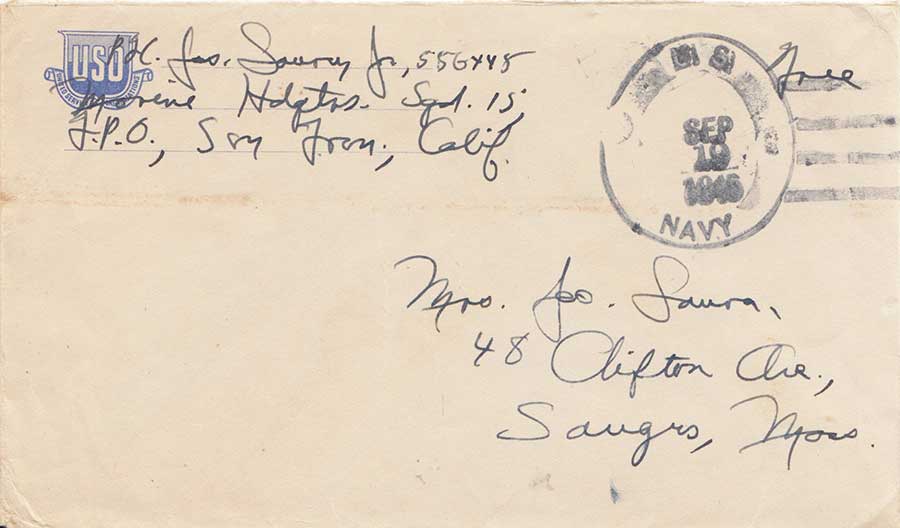 USO
Jas. Laura Jr, 556448
Marine Hdqtrs. Sqd. 15,
F.P.O., San Fran, Calif.
Free
U.S.
SEP
19
1945
NAVY
Mrs. Jas. Laura,
48 Clifton Ave.,
Saugus, Mass.